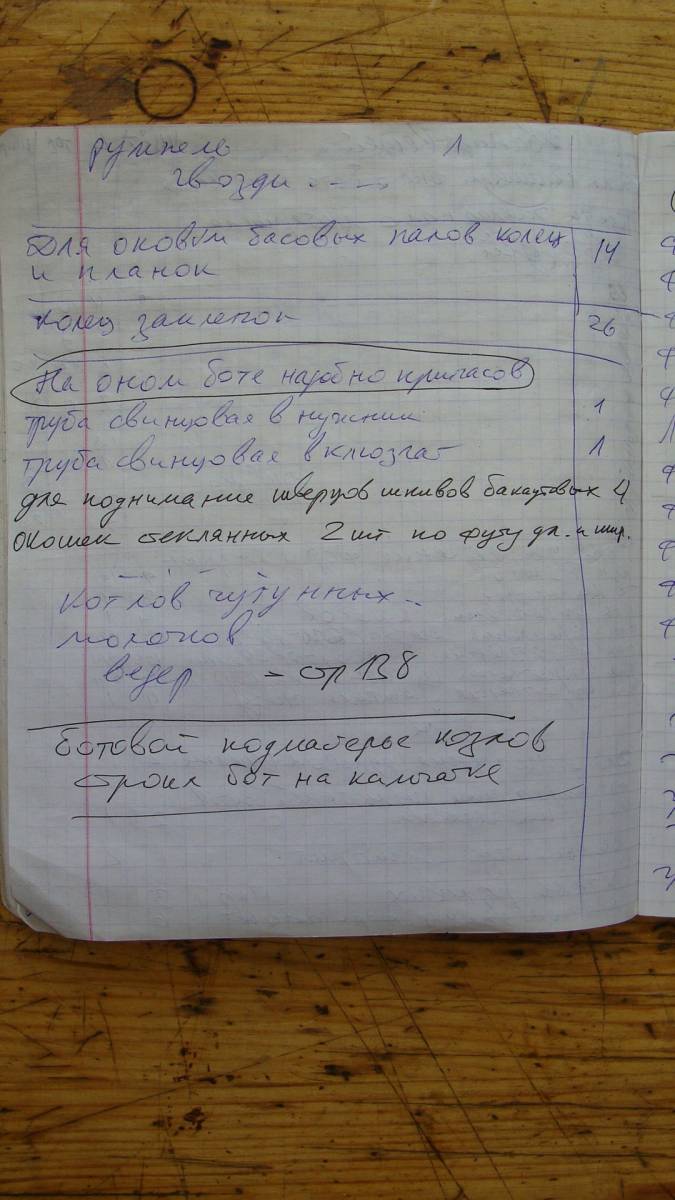 румпель 1
гвозди . - - -
Для оковки басовых палов колец 14
и планок
колец заклепок 26
На оном боте надобно припасов
труба свинцовая в нужник 1
труба свинцовая в клюзгат 1
для поднимание шверцов шкивов бакаутовых 4
окошек стеклянных 2 шт по футу дл. и шир.
котлов чугунных
молотков
ведер - стр 138
ботовой подмастерье козлов
строил бот на камчатке